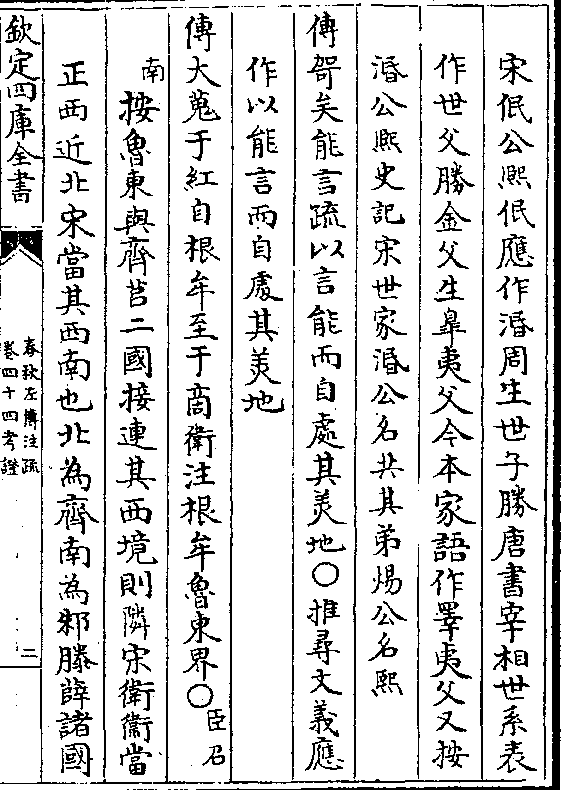 宋佷公熈佷應作湣周生世子勝唐書宰相世系表
作世父勝金父生臯夷父今本家語作睪夷父又按
湣公熈史記宋世家湣公名共其弟煬公名熙
傳哿矣能言疏以言能而自處其羙地〇推尋文義應
作以能言而自處其羙地
傳大蒐于紅自根牟至于商衛注根牟魯東界〇臣召
南按魯東與齊莒二國接連其西境則隣宋衛衞當
正西近北宋當其西南也北為齊南為邾滕薛諸國
欽定四庫全書
春秋左傳注疏
卷四十四考證
二